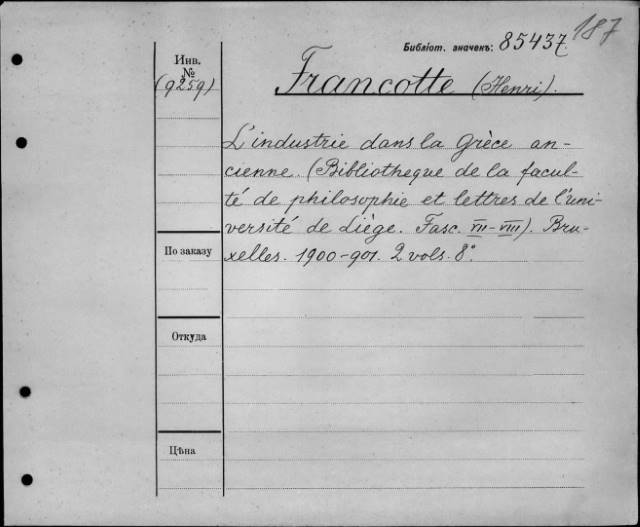 187
Библіот. значекъ: 85437
Инв.
№
(9259)
Francotte (Henri).
L'industrie dans la Grèce an-
cienne. (Bibliotheque de la facul-
té de philosophie et lettres de l'uni-
versité de Liège. Fasc. VII-VIII). Bru-
xelles. 1900-901. 2 vols. 8°.
По заказу
Откуда
Цѣна